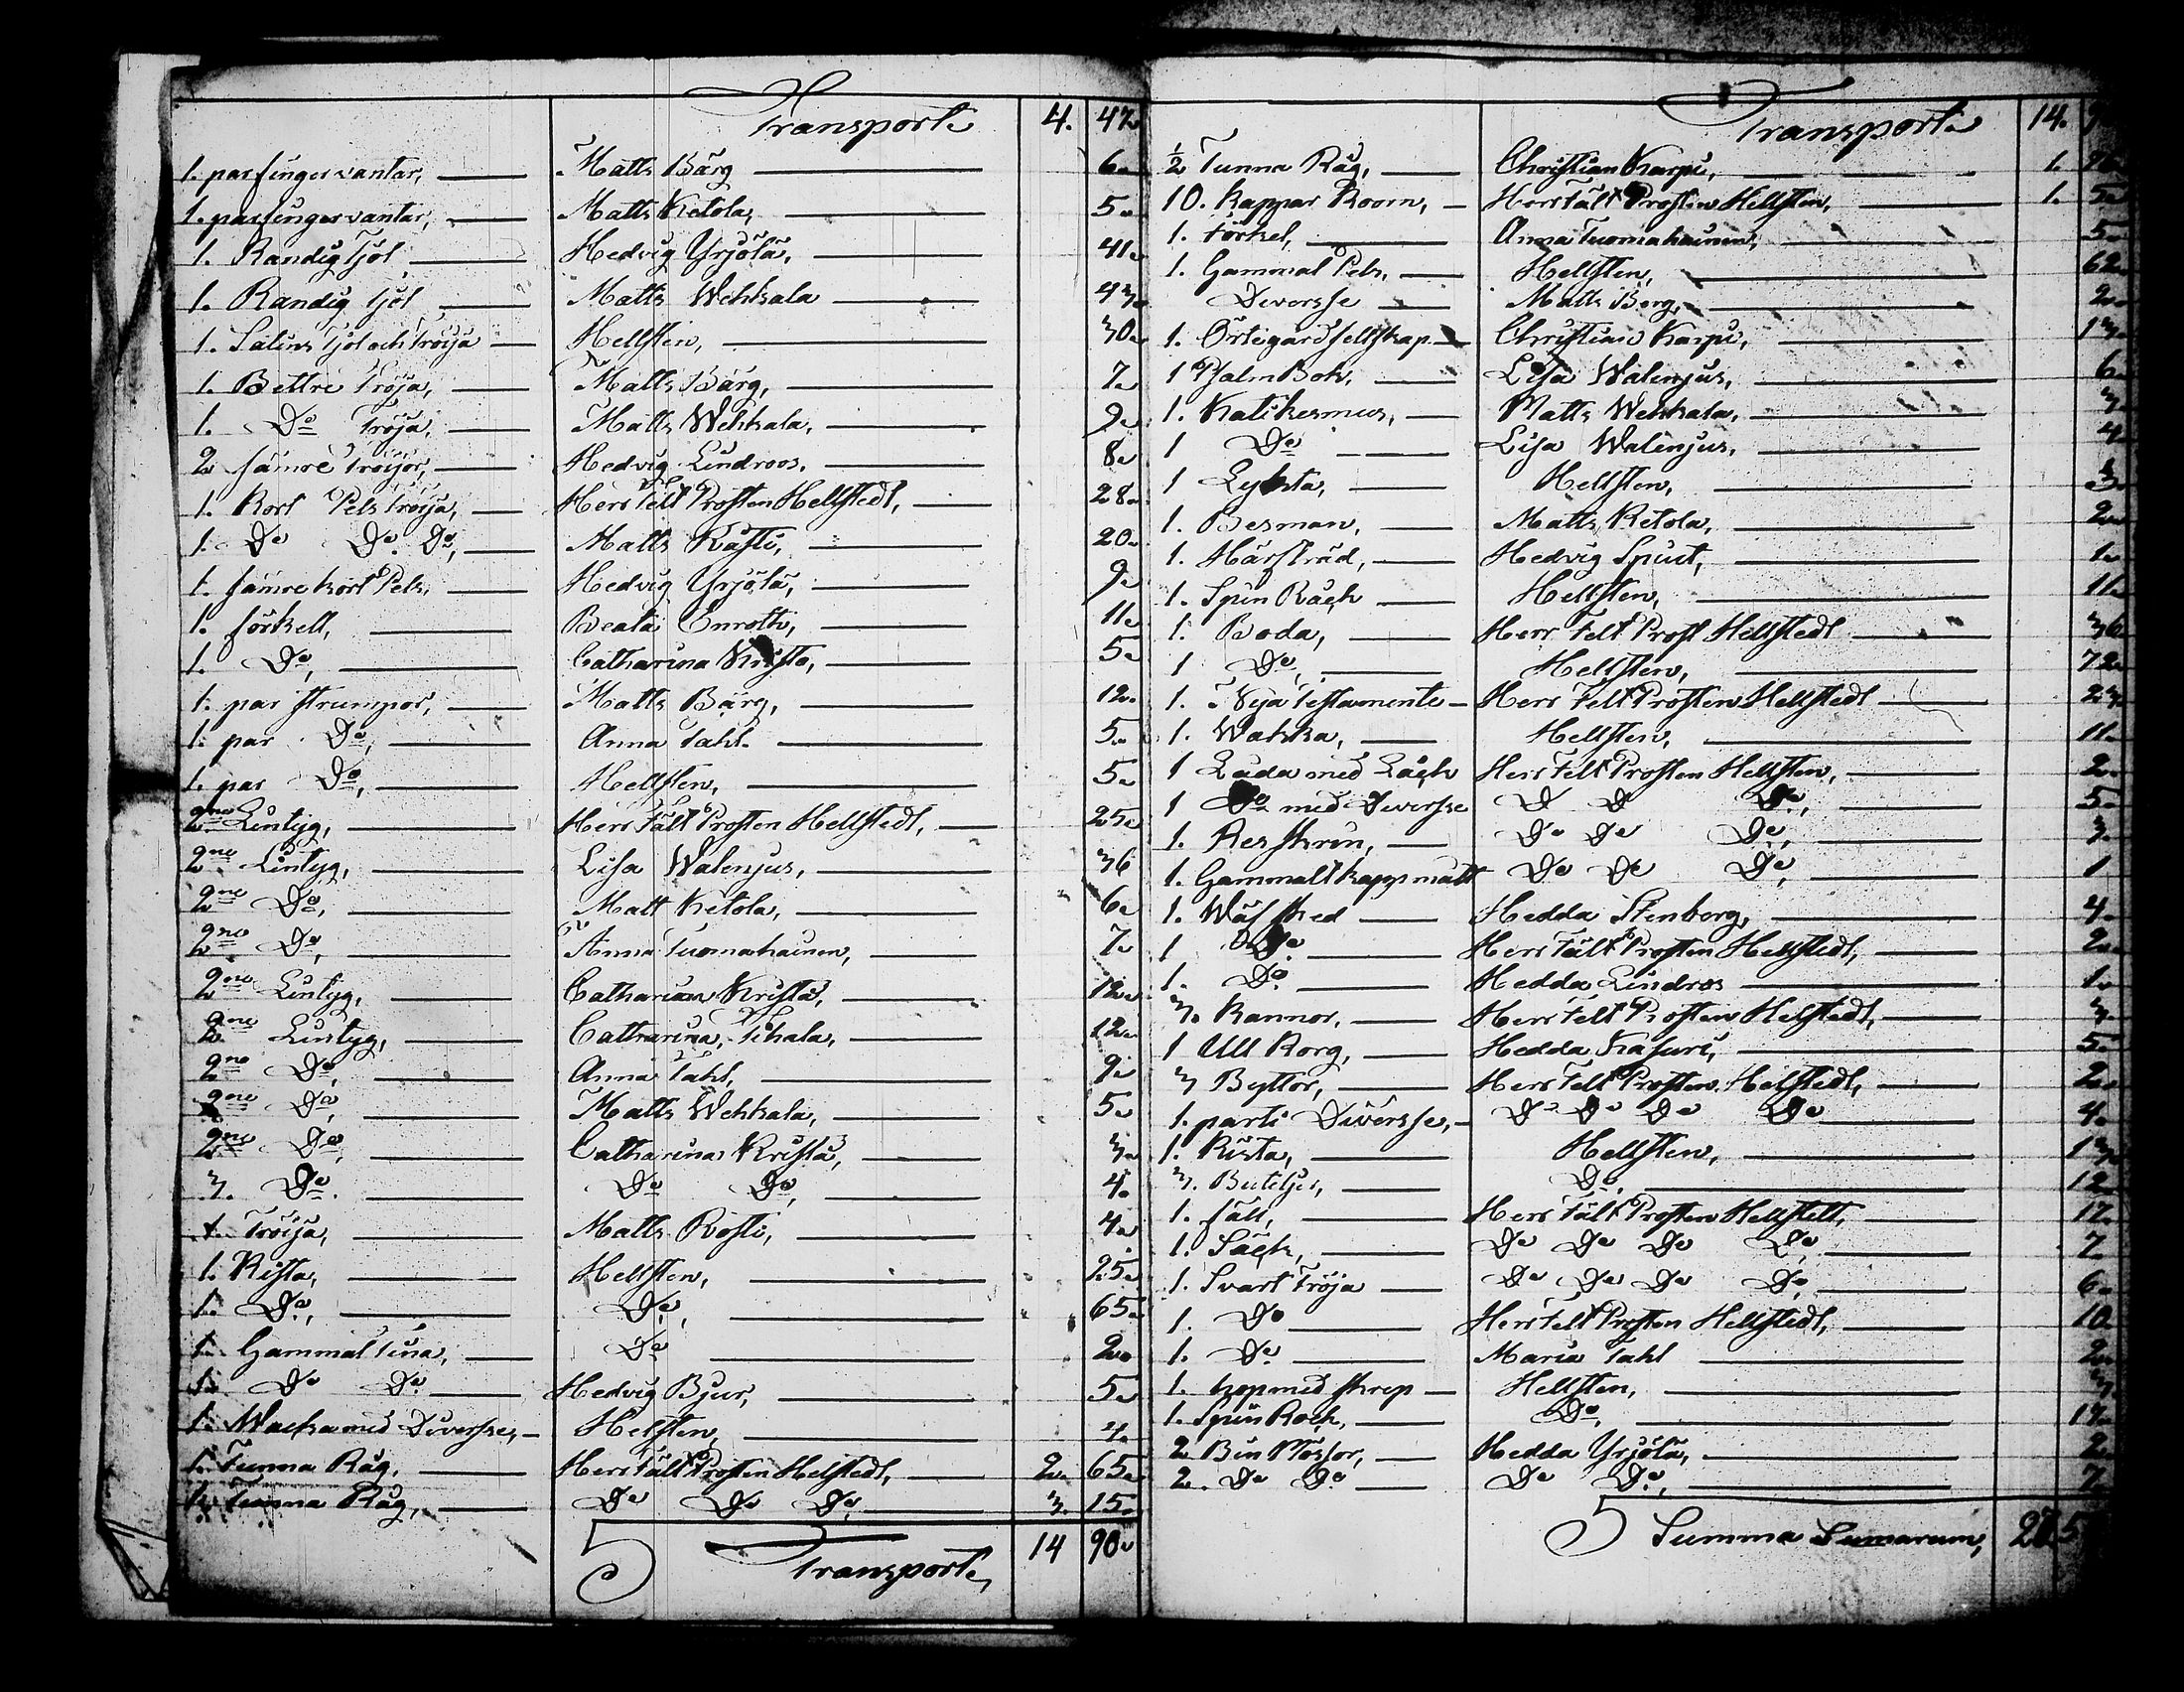 Transport 4. 42
1. par finger vantar, Matts Bärg 6
1. par finger vantar, Matts Ketola, 5
1. Randig Tjol Hedvig Yrjölä, 41
1. Randig Tjol Matts Wehkala 43
1. Salins Tjol och tröija Hellsten, 30
1. Bettre Tröja, Matts Bärg, 7
1. Do Tröja, Matts Wehkala, 9
2 sämre Tröijor, Hedvig Lindroos, 8
1. Kort Pels tröija, Herr Felt Prosten Hellstedt, 28
1. Do Do Do, Matts Råsti, 20
1. sämre kort Pels, Hedvig Yrjölä, 9
1. förkell, Beata Enroth, 11
1. Do, Catharina Kristo, 5
1. par strumpor, Matts Bärg, 12
1. par Do, Anna Tahl. 5
1. par Do, Hellsten, 5
2ne Lintyg, Herr Fält Prosten Hellstedt, 25
2ne Lintyg, Lisa Walenjus, 36
2ne Do, Matt Ketola, 6
2ne Do, Anna Tuomahainen, 7
2ne Lintyg, Catharina Kristä, 12
2ne Lintyg, Catharina, Tihala, 12
2ne Do, Anna Tahl, 9
2ne Do, Matts Wehkala, 5
2ne Do, Catharina Kristä, 3
3. Do. Do Do, 4
1. Tröija, Matts Rosti, 4
1. Kista, Hellsten, 25
1. Do, Do, 65
1. Gammal tina, Do 2
1. Do Do Hedvig Bjur, 5
1. Wacka med Diversse, Helsten, 4
1. Tunna Råg, Herr Fält Prosten Helstedt, 2. 65
1. Tunna Råg, Do Do Do, 3. 15
Transport, 14 90
Transport 14.
½ Tunna Råg, Christian Karpi, 1.
10. Kappar Koorn, Herr Fält Prosten Hellsten, 1. 5
1. Förkel, Anna Tuomahainen, 5
1. Gammal Pels, Hellsten, 62
Diversse Matts Berg, 2
1. Örtegårdsellskap Christian Karpi, 13
1 Psalm Bok, Lisa Walenjus, 6
1. Katikesmus, Matts Wehkala, 3
1 Do Lisa Walenjus, 4
1 Lykta, Hellsten, 3
1. Besman, Matts Ketola, 2
1. Harfträd, Hedvig Spint, 1
1. Spin Råck Hellsten, 11
1. Boda, Herr Felt Prost Hellstedt 36
1 Do, Hellsten, 72
1. Nya Testamente Herr Felt Prosten Hellstedt 23
1. Wakka, Hellsten, 11
1 Låda med Låck Herr Felt Prosten Hellsten, 2
1 Do med Diversse D D Do, 5
1. Res skrin, Do Do Do, 3
1. Gammalt kappmått Do Do Do, 1
1. Wäf sked Hedda Stenberg, 4
1 Do Herr Fält Prosten Hellstedt, 2
1. Do Hedda Lindros 1
3. Kannor, Herr Felt Prosten Helstedt, 3
1 Ull Korg, Hedda Kasuri, 5
3 Byttor, Herr Felt Prosten Helstedt, 2
1. parti Diversse, Do Do Do Do 4
1. Kista, Hellsten, 13
3. Buteljer, Do, 12
1. säll, Herr Fält Prosten Hellstelt, 17
1. Säck, Do Do Do Do, 7
1. Svart Tröja Do Do Do Do, 6
1. Do Herr Felt Prosten Hellstedt, 10
1. Do Maria Tahl 2
1. hop med skrep Hellsten, 3
1. Spin Rock, Do, 19
2 Bin Mössor, Hedda Yrjölä, 2
2. Do Do Do Do, 7
Summa Sumarum,